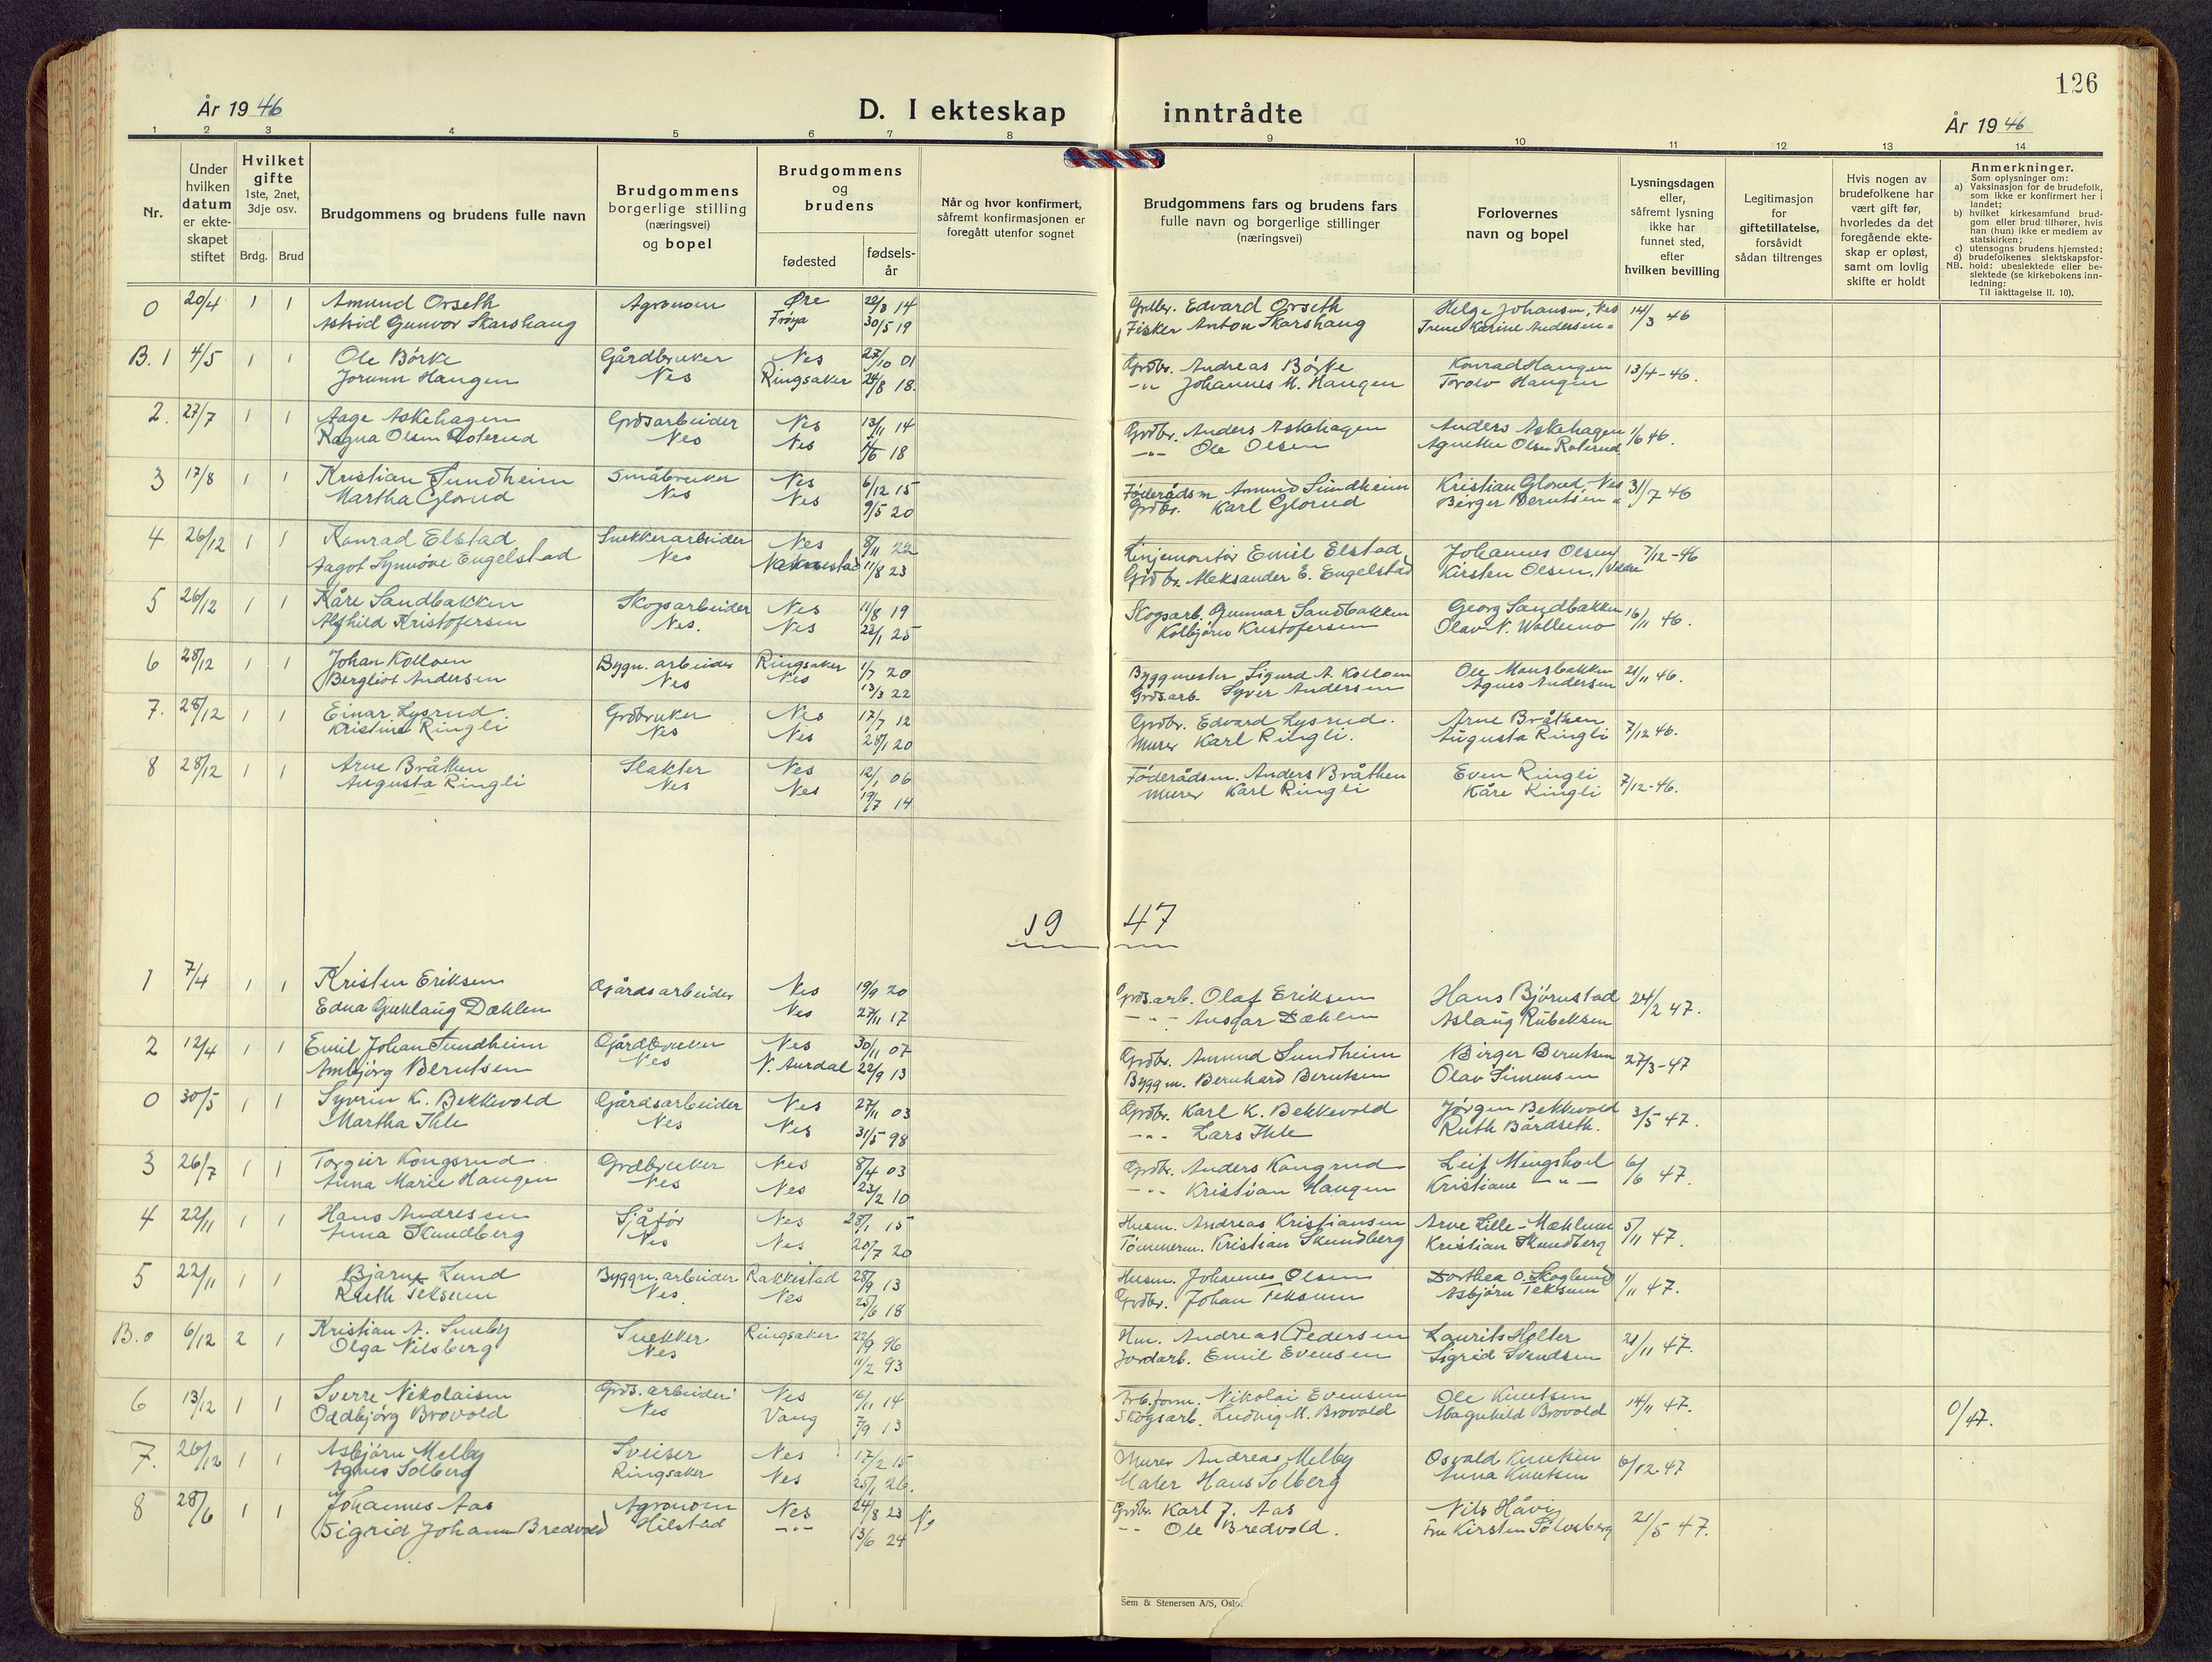 126
År 1946
D. I ekteskap inntrådte
År 1946
1 2 3 4 5 6 7 8 9 10 11 12 13 14
Nr.
Under hvilken datum er ekte-skapet stiftet
Hvilket gifte 1ste, 2net, 3dje osv.
Brdg. Brud
Brudgommens og brudens fulle navn
Brudgommens borgerlige stilling (næringsvei) og bopel
Brudgommens og brudens
fødested
fødsels-år
Når og hvor konfirmert, såfremt konfirmasjonen er foregått utenfor sognet
Brudgommens fars og brudens fars fulle navn og borgerlige stillinger (næringsvei)
Forlovernes navn og bopel
Lysningsdagen eller, såfremt lysning ikke har funnet sted, efter hvilken bevilling
Legitimasjon for giftetillatelse, forsåvidt sådan tiltrenges
Hvis nogen av brudefolkene har vært gift før, hvorledes da det foregående ekte-skap er opløst, samt om lovlig skifte er holdt
Anmerkninger.
Som oplysninger om:
a) Vaksinasjon for de brudefolk, som ikke er konfirmert her i landet;
b) hvilket kirkesamfund brud-gom eller brud tilhører, hvis han (hun) ikke er medlem av statskirken;
c) utensogns brudens hjemsted;
d) brudefolkenes slektskapsfor-hold: ubeslektede eller be-slektede (se kirkebokens inn-ledning:
NB.
Til iakttagelse II. 10).
0 20/4 1 1 Amund Orseth Agronom Øre 22/3 14 Edvard Orseth Helge Johansen, Nes 14/3 46
Astrid Gunvor Skarshaug Frøya 30/5 19 Fisker Anton Skarshaug Irene Karine Andersen "
B. 1 4/5 1 1 Ole Børke Gårdbruker Nes 27/10 01 Grdbr. Andreas Børke Konrad Haugen 13/4-46.
Jorunn Haugen Nes Ringsaker 24/8 18. -"- Johannes M. Haugen Torolv Haugen
2. 27/7 1 1 Aage Askehagen Grdsarbeider Nes 13/11 14 Grdbr. Anders Askehagen Anders Askehagen 1/6 46.
Ragna Olsen Roterud Nes Nes 18 -"- Ole Olsen Agnethe Olsen Roterud
3 17/8 1 1 Kristian Sundheim Småbruker Nes 6/12 15 Føderådsm. Amund Sundheim Kristian Glorud, Nes 31/7 46
Martha Glorud Nes Nes 9/5 20 Grdbr. Karl Glorud Birger Berntsen "
4 26/12 1 1 Konrad Elstad Snekkerarbeider Nes 8/11 22 Linjemontør Emil Elstad Johannes Olsen 7/12-46
Aagot Synnøve Engelstad Nes 11/8 23 Grdbr. Aleksander E. Engelstad Kirsten Olsen,
5 26/12 1 1 Kåre Sandbakken Skogsarbeider Nes 11/8 19 Skogsarb. Gunnar Sandbakken Georg Sandbakken 16/11 46.
Alfhild Kristofersen Nes. Nes 23/1 25 Kolbjørn Kristofersen Olav N. Wollemo
6 28/12 1 1 Johan Kolloen Bygn. arbeider Ringsaker 1/7 20 Byggmester Sigurd A. Kolloen Ole Mansbakken 21/11 46.
Bergliot Andersen Nes Nes 13/3 22 Grdsarb. Syver Andersen Agnes Andersen
7. 28/12 1 1 Einar Lysrud Grdbruker Nes 17/7 12 Grdbr. Edvard Lysrud. Arne Bråthen 7/12 46.
Kristine Ringli Nes Nes 28/1 20 Murer Karl Ringli. Augusta Ringli
8 28/12 1 1 Arne Bråthen Slakter Nes 12/1 06 Føderådsm. Anders Bråthen Even Ringli 7/12-46.
Augusta Ringli Nes Nes 19/7 14 Murer Karl Ringli Kåre Ringli
1947
1 7/4 1 1 Kristen Eriksen Gårdsarbeider Nes 19/9 20 Grds.arb. Olaf Eriksen Hans Bjørnstad 24/2 47.
Edna Gunlaug Dæhlen Nes 27/11 17 -"- Ansgar Dæhlen Aslaug Rubeksen
2 12/4 1 1 Emil Johan Sundheim Gårdbruker Nes 30/11 07 Grdbr. Amund Sundheim Birger Berntsen 27/3-47
Ambjørg Berntsen Nes N. Aurdal 22/9 13 Byggm. Bernhard Berntsen Olav Simensen
0 30/5 1 1 Syverin K. Bekkevold Gårdsarbeider Nes 27/11 03 Grdbr. Karl K. Bekkevold Jørgen Bekkevold 3/5 47.
Martha Ihle Nes Nes 31/5 98 -"- Lars Ihle Ruth Bårdseth.
3 26/7 1 1 Torgeir Kongsrud Grdbruker Nes 8/4 03 Grdbr. Anders Kangrud Leif Mengshoel 6/6 47.
Anna Marie Haugen Nes Nes 23/2 10 -"- Kristian Haugen Kristiane -"-
4 22/11 1 1 Hans Andresen Sjåfør Nes 28/1 15 Husm. Andreas Kristiansen Arve Lille-Mæhlum 5/11 47.
Anna Skundberg Nes Nes 20/7 20 Tømmerm. Kristian Skundberg Kristian Skundberg
5 22/11 1 1 Bjarne Lund Byggn. arbeider Rakkestad 28/9 13 Husm. Johannes Olsen Dorthea O. Skoglund 1/11 47.
Ruth Teksum Nes Nes 25/6 18 Grdbr. Johan Teksum Asbjørn Teksum
B. 0 6/12 2 1 Kristian A. Smeby Snekker Ringsaker 22/9 96 Hm. Andreas Pedersen Laurits Holter 21/11 47.
Olga Nilsberg Nes 11/2 93 Jordarb. Emil Evensen Sigrid Svendsen
6 13/12 1 1 Sverre Nikolaisen Grds. arbeider Nes 16/11 14 Arb.form. Nikolai Evensen Ole Knutsen 14/11 47. 0/47.
Oddbjørg Brovold Nes Vang 7/9 13 Skogsarb. Ludvig M. Brovold Magnhild Brovold
7. 26/12 1 1 Asbjørn Melby Sveiser Nes 17/2 15 Murer Andreas Melby Osvald Knutsen 6/12 47
Agnes Solberg Ringsaker Nes 25/1 26. Maler Hans Solberg Anna Knutsen
8 28/6 1 1 Johannes Aas Agronom Nes 24/8 23 Grdbr. Karl J. Aas Nils Håvi 21/5 47.
Sigrid Johanne Bredvold Hilstad -"- 13/6 24 -"- Ole Bredvold. Fru Kirsten Solvsberg
Sem & Stenersen A/S, Oslo.